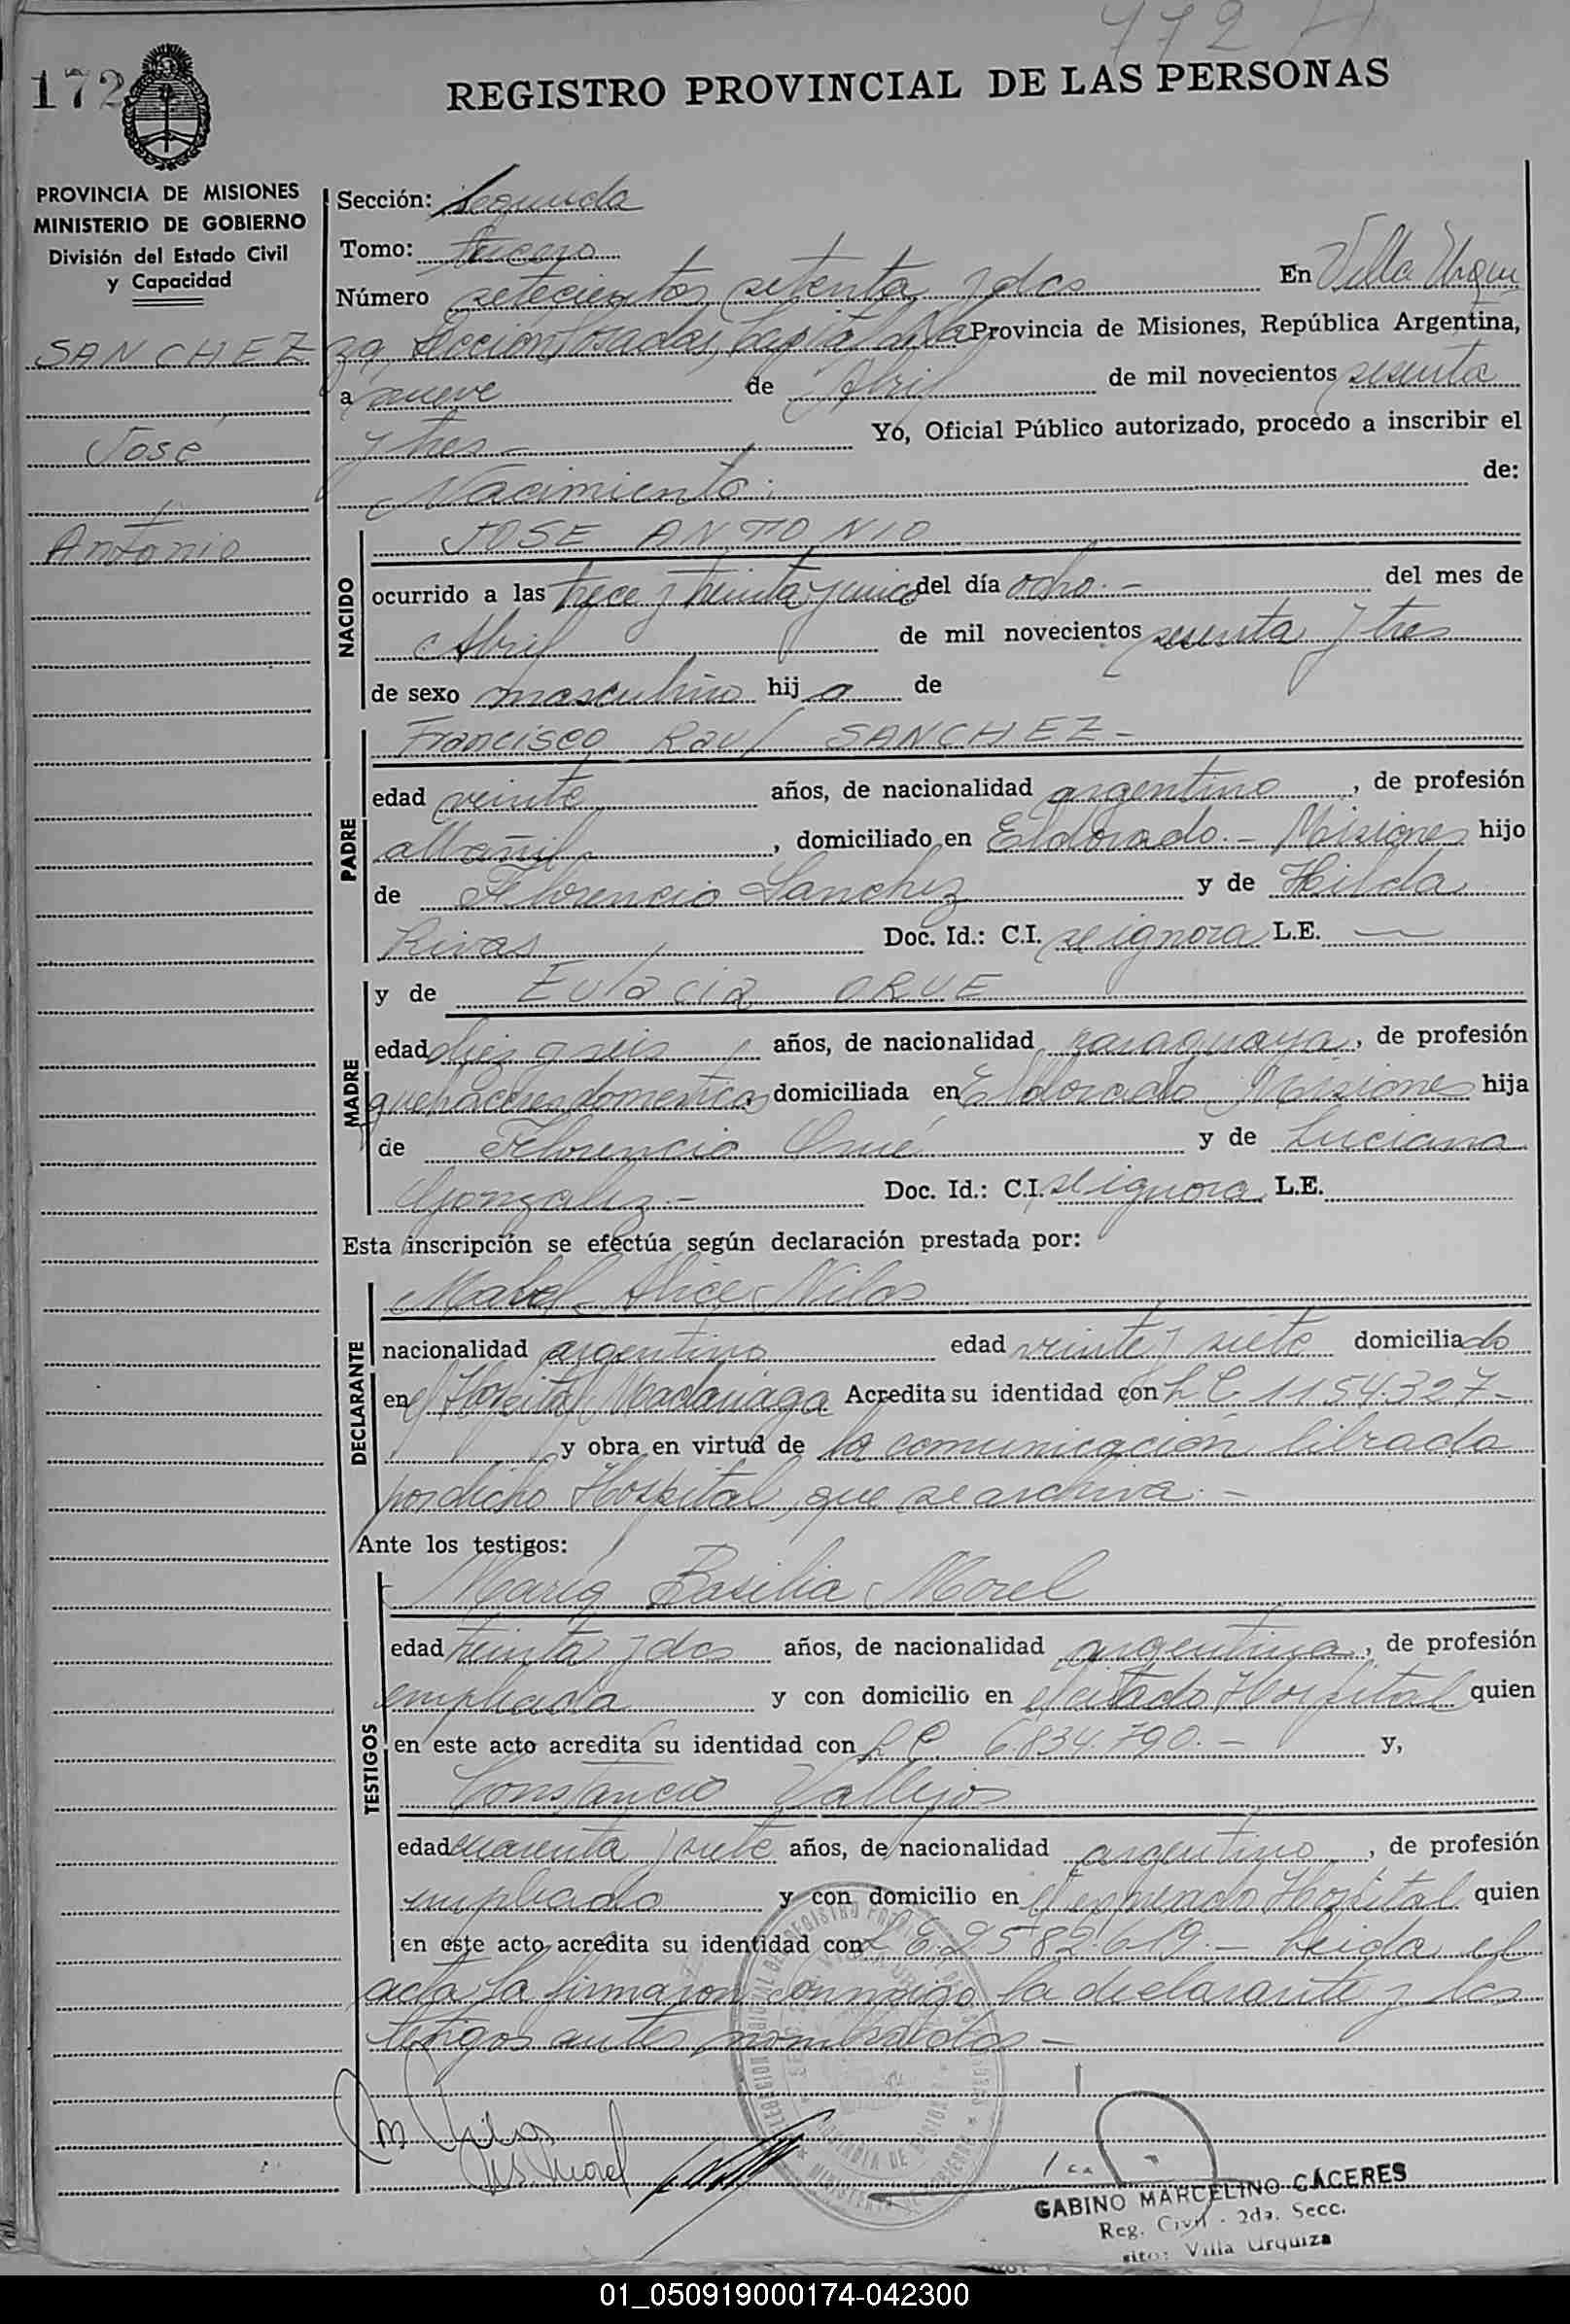 772
172
REGISTRO PROVINCIAL DE LAS PERSONAS
PROVINCIA DE MISIONES
MINISTERIO DE GOBIERNO
División del Estado Civil
y Capacidad
SANCHEZ
José
Antonio
Sección: Segunda
Tomo: tercero
Número setecientos setenta y dos En Villa Urqui
za, Seccion Posadas, Capital de la Provincia de Misiones, República Argentina,
a nueve de Abril de mil novecientos sesenta
y tres.- Yo, Oficial Público autorizado, procedo a inscribir el
Nacimiento. de:
NACIDO
JOSE ANTONIO
ocurrido a las trece y treinta y cinco del día ocho.- del mes de
Abril de mil novecientos sesenta y tres
de sexo masculino hij o de
PADRE
Francisco Raul SANCHEZ-
edad veinte años, de nacionalidad argentino, de profesión
albañil, domiciliado en Eldorado.- Misiones hijo
de Florencio Sanchez y de Hilda
Rivas Doc. Id.: C.I. se ignora L.E. —
MADRE
y de Eulacia ORUE
edad diez y seis años, de nacionalidad paraguaya, de profesión
quehaceres domesticos domiciliada en Eldorado Misiones hija
de Florencio Orué y de Luciana
Gonzalez.- Doc. Id.: C.I. se ignora L.E.
Esta inscripción se efectúa según declaración prestada por:
DECLARANTE
Mabel Alice Nilos
nacionalidad argentino edad veinte y siete domiciliado
en el Hospital Madariaga Acredita su identidad con L C 1154.327-
y obra en virtud de la comunicación librada
por dicho Hospital, que se archiva.-
Ante los testigos:
TESTIGOS
Maria Basilia Morel
edad treinta y dos años, de nacionalidad argentina, de profesión
empleada y con domicilio en el citado Hospital quien
en este acto acredita su identidad con L C. 6.834.790.- y,
Constancio Vallejos
edad cuarenta y siete años, de nacionalidad argentino, de profesión
empleado y con domicilio en el expresado Hospital quien
en este acto acredita su identidad con L E. 2582619.- Leida el
acta la firmaron conmigo la declarante y los
testigos antes nombrados-
M. S. Morel
GABINO MARCELINO CÁCERES
Reg. Civil - 2da. Secc.
sito: Villa Urquiza
01_050919000174-042300